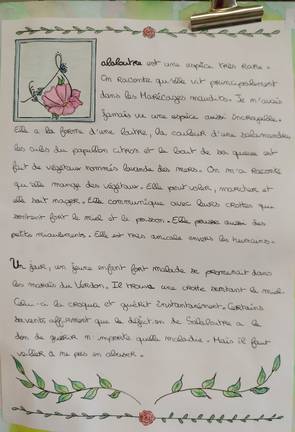 alaloutre est une espèce très rare.
On Raconte qu'elle vit principalement
dans les Marécages maudits. Je n'avais
Jamais vu une espèce aussi incroyable.
Elle a la forme d'une loutre, la couleur d'une salamandre
les ailes du papillon citron et le bout de sa queue est
fait de végétaux nommés lavande des mers. On m'a raconté
qu'elle mange des végétaux. Elle peut voler, marcher et
elle sait nager. Elle communique avec leurs crottes qui
sentent fort le miel et le poisson. Elle pousse aussi des
petits miaulements. Elle est très amicale envers les humains.
Un jour, un jeune enfant fort malade se promenait dans
les marais du Verdon. Il trouva une crotte sentant le miel.
Celui-ci la croqua et guérit instantanément. Certains
savants affirment que la déjection de Salaloutre a le
don de guérir n'importe quelle maladie. Mais il faut
veiller à ne pas en abuser.